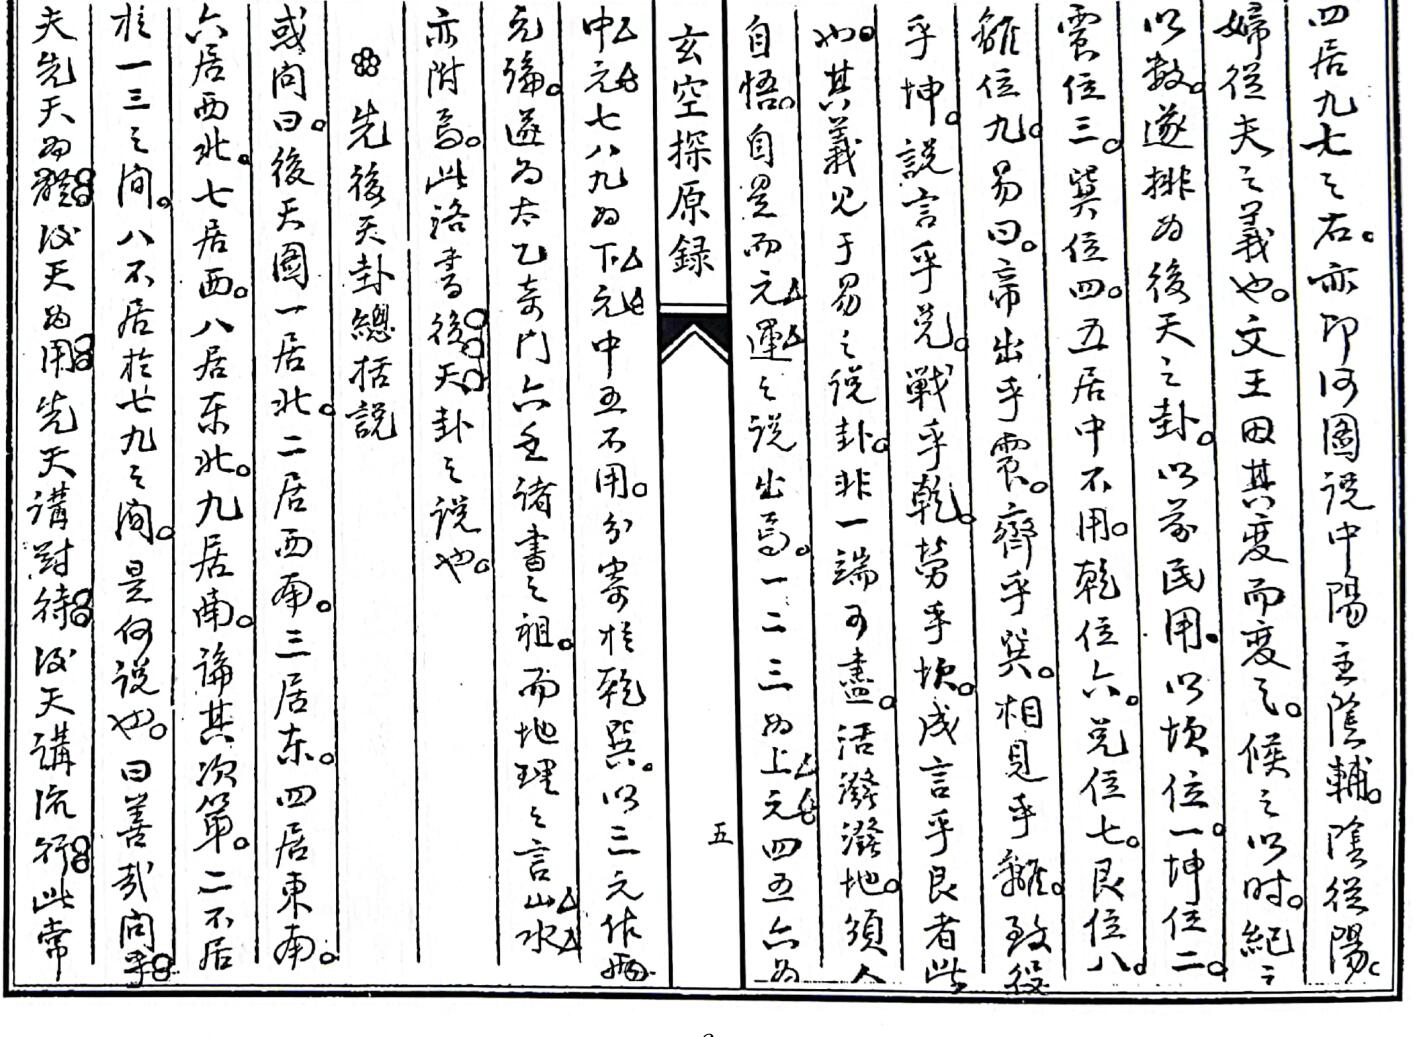 四居九七之右。亦即河圖說中陽主陰輔。陰從陽。
婦從夫之義也。文王因其變而變之。候之以时。紀之
以数。遂排为後天之卦。以前民用。以坎位一。坤位二。
震位三。巽位四。五居中不用。乾位六。兑位七。艮位八。
離位九。易曰。帝出乎震。齊乎巽。相見乎離。致役
乎坤。説言乎兑。戰乎乾。勞乎坎。成言乎艮者此
也。其義见于易之说卦。非一端可盡。活潑潑地。須人
自悟。自覺而元運之说出焉。一二三为上元四五六为
玄空探原録
五
中元七八九为下元中五不用。分寄於乾巽。以三元作
元論。遂为太乙奇门六壬诸書之祖。而地理之言山水
亦附焉。此洛書後天卦之说也。
先後天卦總括説
或问曰。後天圖一居北。二居西南。三居东。四居東南。
六居西北。七居西。八居东北。九居南。論其次第。二不居
於一三之间。八不居於七九之间。是何说也。曰善哉问乎
夫先天为體后天为用先天講對待后天講流行此常